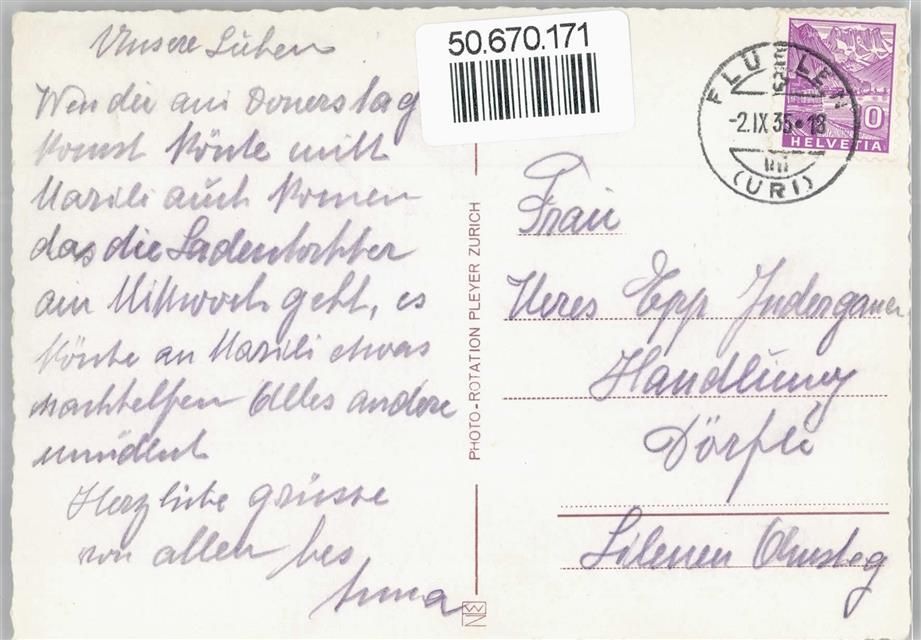 Unsere Lieben
Wen die am Donerstag
komst könte mitt
Marili auch komen
das die Ladentochter
am Mittwoch geht, es
könte an Marili etwas
nachhelfen Alles andere
mündlich
Herzliche grüsse
von allen bes
Anna
50.670.171
FLÜELEN
-2.IX 35•18
(URI)
10
HELVETIA
PHOTO-ROTATION PLEYER ZURICH
Frau
Epp Indergand
Handlung
Dörfli
Silenen Amsteg